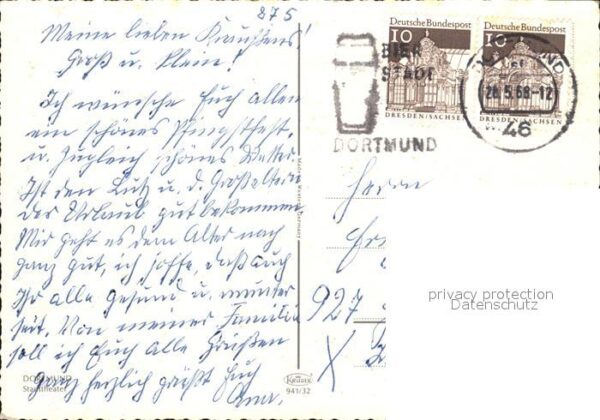 275
Meine lieben
Groß u. Klein!
Ich wünsche Euch allen
ein schönes Pfingstfest,
u. zugleich schönes Wetter.
Ist den Lutz u. d. Großeltern
der Urlaub gut bekommen
Mir geht es dem Alter nach
ganz gut, ich hoffe, daß auch
Ihr alle gesund u. munter
seit. Von meiner Familie
soll ich Euch alle Grüßen
ganz herzlich grüßt Euch
DORTMUND
Stadttheater
Krüger
941/32
Deutsche Bundespost
10
DRESDEN/SACHSEN
Deutsche Bundespost
10
DRESDEN/SACHSEN
BIER
STADT
DORTMUND
28.5.68-12
46
Herrn
927
X
privacy protection
Datenschutz